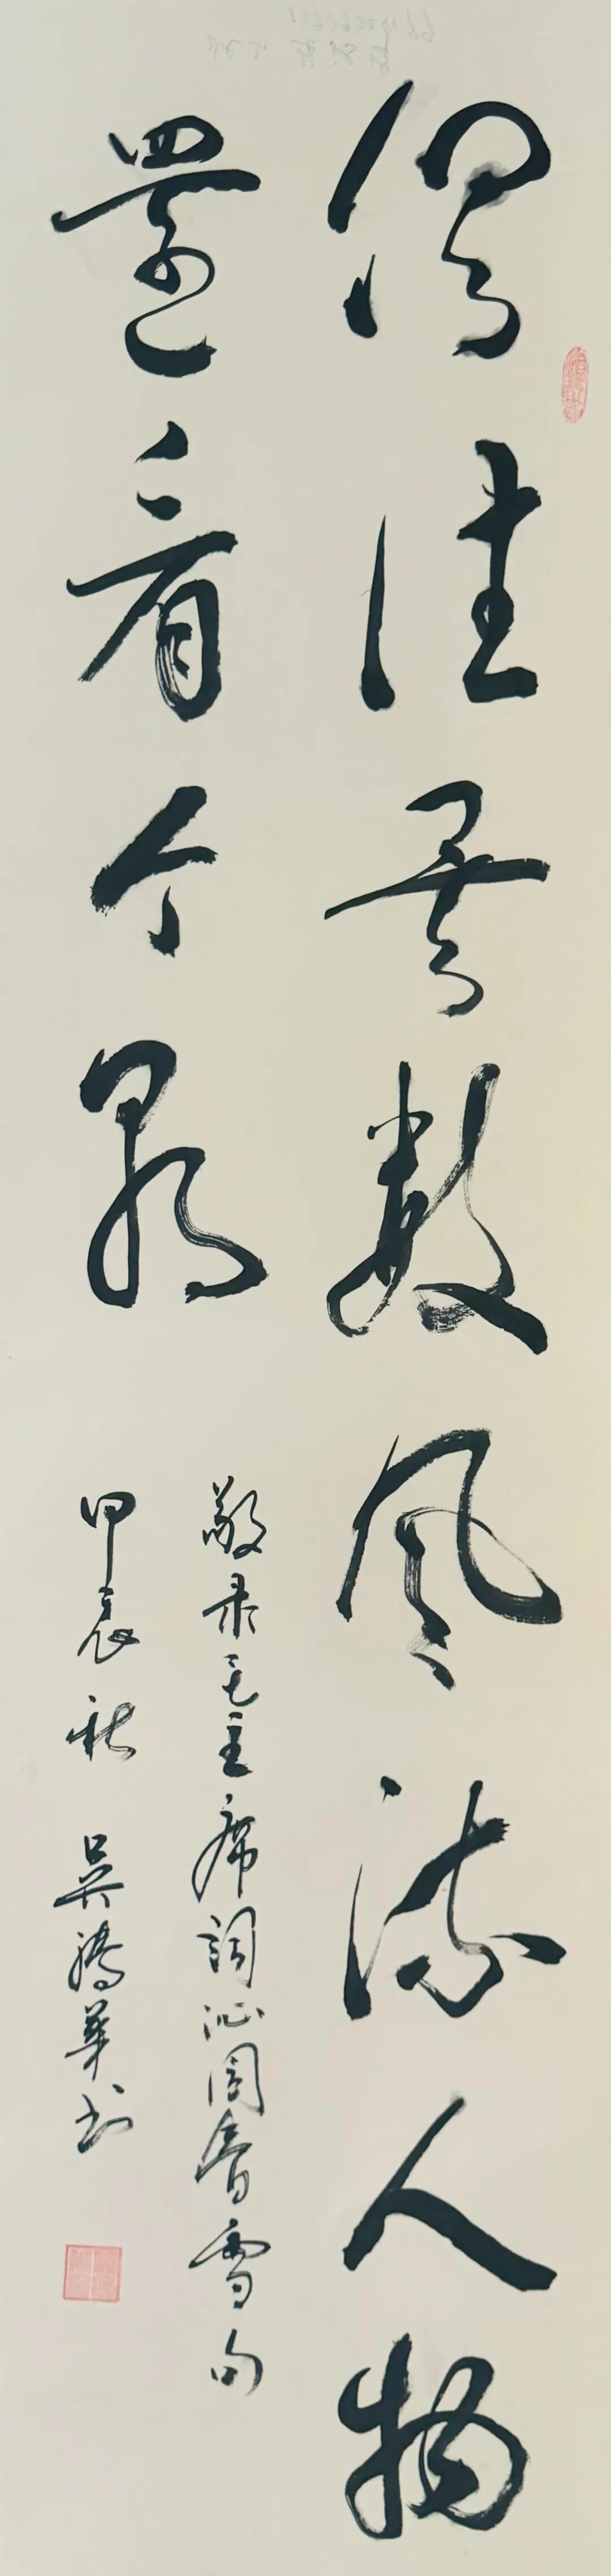 俱往矣数风流人物
還看今朝
敬录毛主席詞沁園春雪句
甲辰秋 吴騰華书